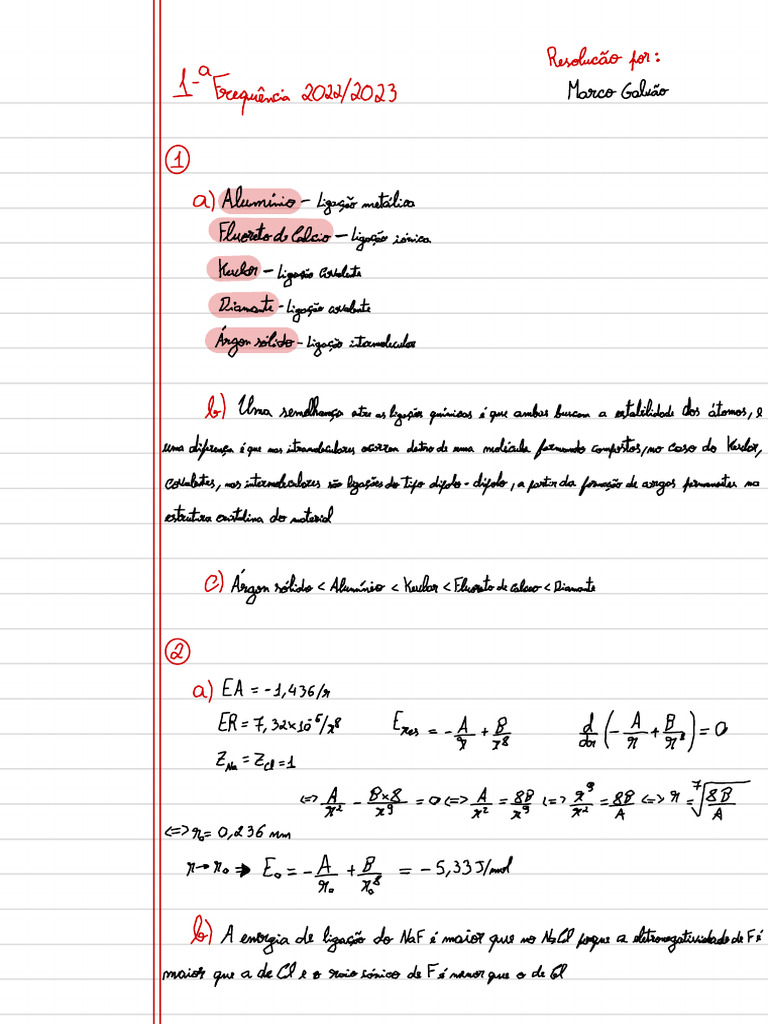 Resolução por:
1-ª Frequência 2022/2023
Marco Galvão
1
a) Alumínio - Ligação metálica
Fluoreto de Calcio - Ligação iónica
Kevlar - Ligação covalente
Diamante - Ligação covalente
Árgon sólido - Ligação intermolecular
b) Uma semelhança entre as ligações químicas é que ambas buscam a estabilidade dos átomos, e
uma diferença é que nas intramoleculares ocorrem dentro de uma molécula formando compostos, no caso do Kevlar,
covalentes, nas intermoleculares são ligações do tipo dipolo-dipolo, a partir da formação de cargas permanentes na
estrutura cristalina do material
c) Árgon sólido < Alumínio < Kevlar < Fluoreto de Calcio < Diamante
2
a) EA = -1,436/r
ER = 7,32×10⁻⁶/r⁸ E_res = -A/r + B/r⁸ d/dr (-A/r + B/r⁸) = 0
Z_Na = Z_Cl = 1
<=> A/r² - B×8/r⁹ = 0 <=> A/r² = 8B/r⁹ <=> r⁹/r² = 8B/A <=> r = ⁷√(8B/A)
<=> r₀ = 0,236 nm
r → r₀ ⇒ E₀ = -A/r₀ + B/r₀⁸ = -5,33 J/mol
b) A energia de ligação do NaF é maior que no NaCl porque a eletronegatividade de F é
maior que a de Cl e o raio iónico de F é menor que o de Cl